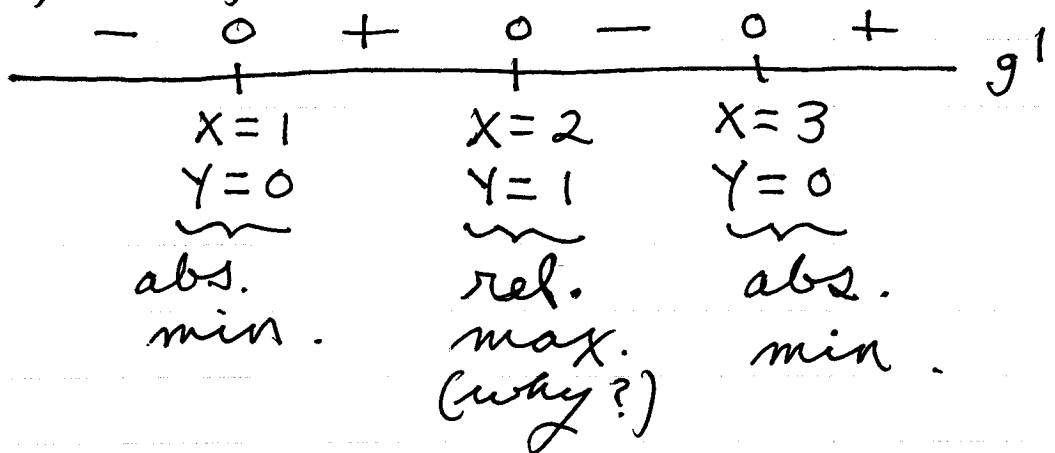 − 0 + 0 − 0 +
g'
X=1 X=2 X=3
Y=0 Y=1 Y=0
abs. rel. abs.
min. max. min.
(why?)